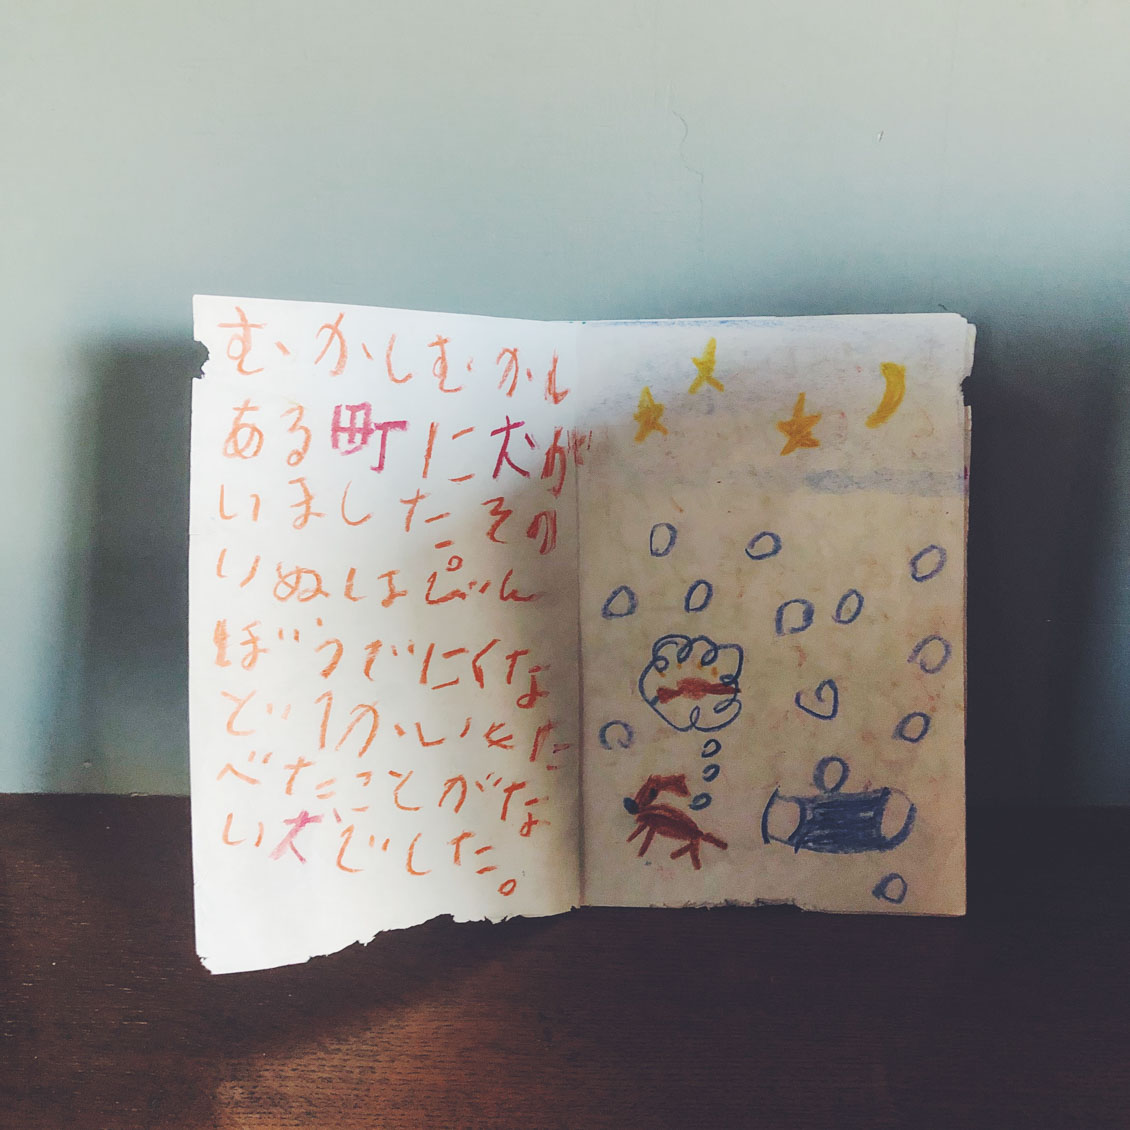 むかしむかし
ある町に犬が
いました。その
いぬはびん
ぼうでにくな
ど1かいもた
べたことがな
い犬でした。